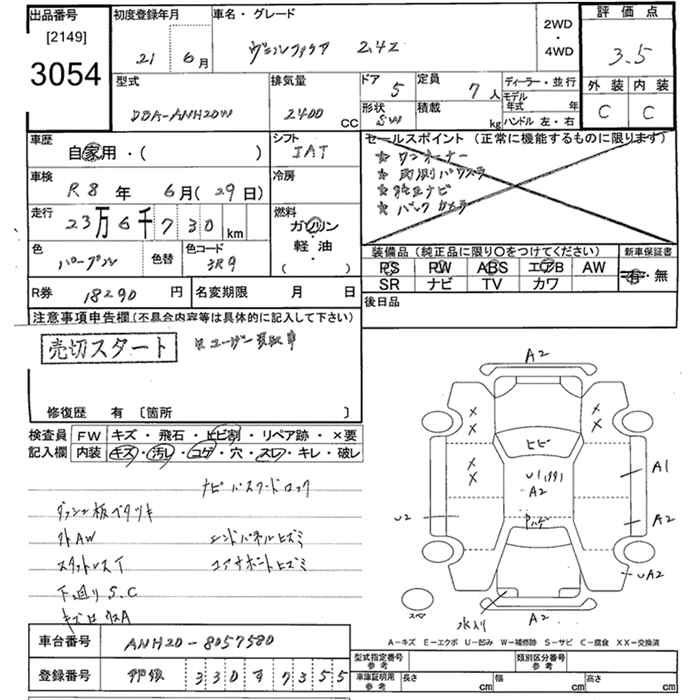 出品番号 初度登録年月 車名・グレード 2WD・4WD 評価点
[2149] 21年 6月 ヴェルファイア 2.4Z 3.5
3054
型式 排気量 ドア 5 定員 7人 ディーラー・並行 外装 内装
DBA-ANH20W 2400 CC 形状 SW 積載 kg モデル年式 年 C C
ハンドル 左・右
車歴 シフト セールスポイント (正常に機能するものに限ります)
自家用・( ) IAT ★ ワンオーナー
車検 冷房 ★ 両側パワスラ
R8年 6月(29日) ★ 純正ナビ
走行 燃料 ★ バックカメラ
23万6千730km ガソリン
色 色替 色コード 軽油 装備品 (純正品に限り○をつけてください) 新車保証書
パープル 3R9 ( ) PS PW ABS エアB AW 有・無
SR ナビ TV カワ
R券 18290円 名変期限 月 日 後日品
注意事項申告欄(不具合内容等は具体的に記入して下さい)
売切スタート ※ユーザー買取車
修復歴 有 〔箇所 〕
検査員 FW キズ・飛石・ヒビ割・リペア跡・×要
記入欄 内装 キズ・汚レ・コゲ・穴・スレ・キレ・破レ
ナビパスワードロック
ダッシュ板ベタツキ
外AW エンドパネルヒズミ
スタットレスT コアサポートヒズミ
下廻りS.C
A2
× ×
× ×
ヒビ
×
×
U1(99)
A2
A1
U2
A2
UA2
スペ
水入り
A2
A−キズ E−エクボ U−凹み W−補修跡 S−サビ C−腐食 XX−交換済
車台番号 ANH20-8057580
登録番号 330す7355
型式指定番号 参考 類別区分番号 参考
車庫証明用 参考 長さ cm 幅 cm 高さ cm